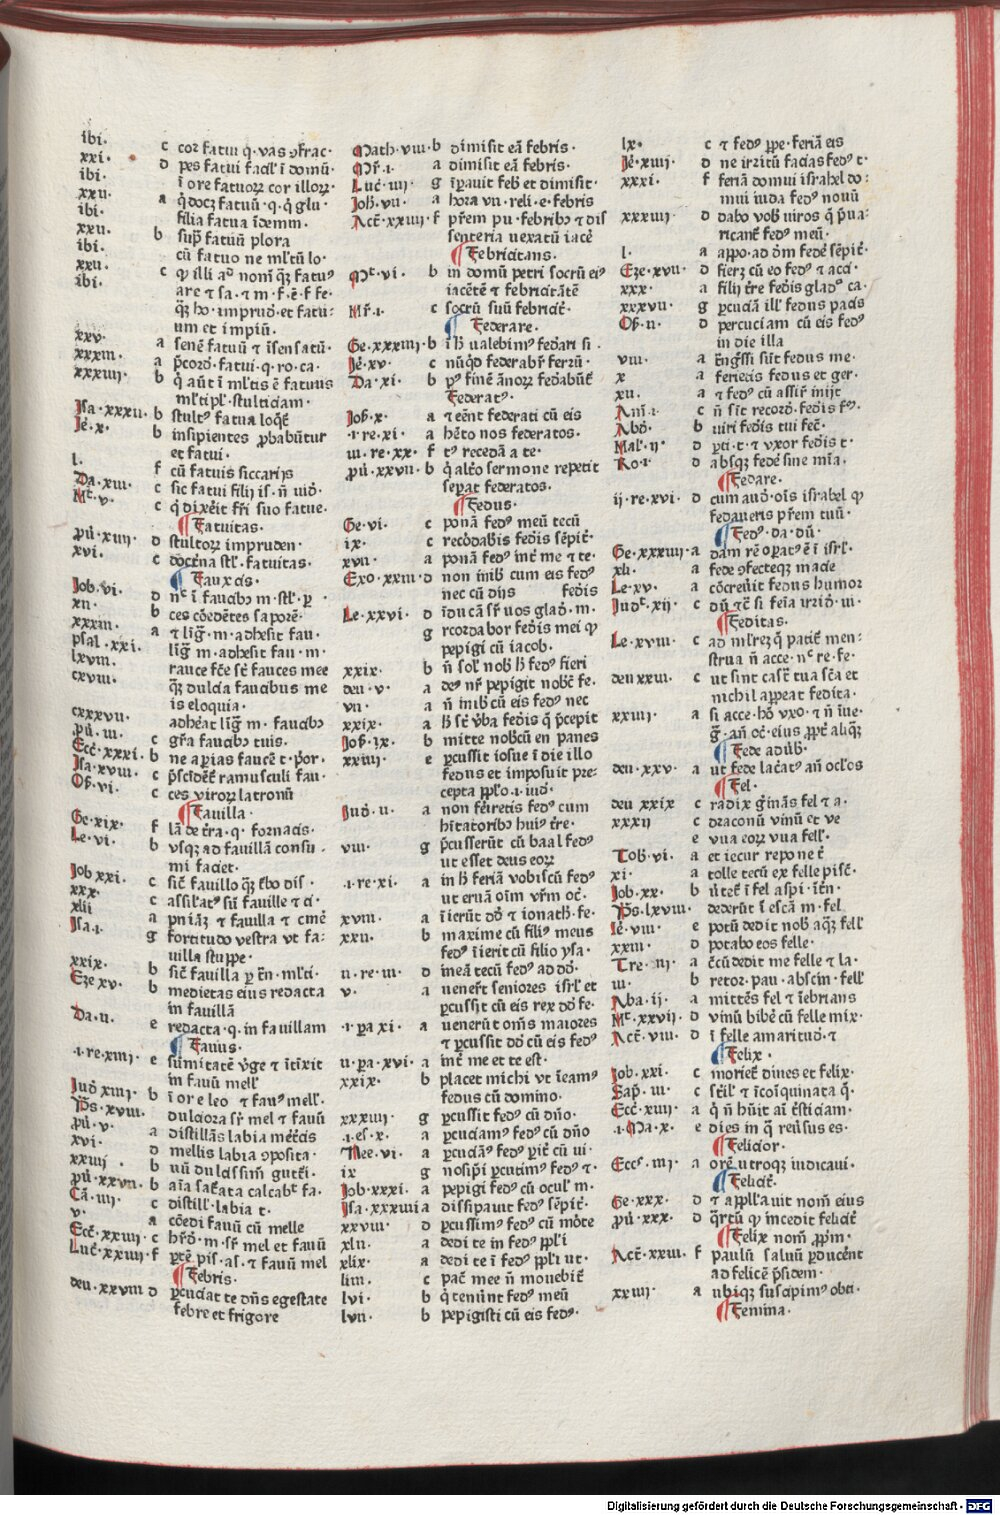 ibi. c cor fatui q̄. vas ꝯfrac.
xxi. d pes fatui facil̕ ī domū.
ibi. ī ore fatuoꝝ cor illoꝝ.
xxii. a
ibi. filia fatua
xxii. b sup̄ fatuū plora
ibi. cū fatuo ne ml̕tū lo.
xxii. c
ibi. are ⁊ sa. ⁊ m. f. ē. f fe.
um et impiū.
xxv. a senē fatuū ⁊ īsensatū.
xxxiii. a p̄cord. fatui. q. ro. ca.
xxxiiij. b q̄ aūt ī ml̕tis ē fatuus
ml̕tipl̕. stulticiam.
Isa. xxxii. b stultꝰ fatua loq̄t̄
Je. x. b insipientes ꝓbabūtur
et fatui.
l. f cū fatuis siccarijs
Da. xiii. c sic fatui filij is. n̄ iud.
Mt. v. c q̄ dixerit fr̄i suo fatue.
¶ Fatuitas.
ꝓu. xiiij. d stultoꝝ impruden.
xvi. c doctrna stl̕. fatuitas.
¶ Faux cis.
Job. vi. d
xii. b ces comedētes sapore.
xxxiii. a ⁊ līg̅. m. adhesit fau.
psal. xxi. līg̅ m. adhesit fau. m.
lxviii. rauce fc̄e st̄ fauces mee
cxviii. q̄ꝫ dulcia faucibus me
is eloquia.
cxxxvii. adhēat līg̅ m. faucibꝫ
ꝓu. iii. c gr̄a faucibꝫ tuis.
Ecc. xxxi. b ne apias faucē t. p̄or.
Isa. xviii. c p̄scidēt̄ ramusculi fau.
Os. vi. c ces viroꝝ latronū
¶ Favilla.
Ge. xix. f
Le. vi. b vsqꝫ ad fauillā consu.
mi faciet.
Job xxi. c
xxx. c assil̕atꝰ sū fauille ⁊ ci.
xlii a pniāꝫ ⁊ fauilla ⁊ cinē
Isa. i. g fortitudo vestra vt fa.
uilla stuppe.
xxix. b
Eze xv. b medietas eius redacta
in fauillā
Da. ii. e redacta. q. in fauillam
¶ Fauus.
.i. re. xiiij. e sūmitatē v̄ge ⁊ ītīxit
in fauū mell̕
Jud xiiij. b ī ore leo ⁊ fauꝰ mell̕.
Ps. xviii. dulciora sr̄ mel ⁊ fauū
ꝓu. v. a distillās labia mēt̄cis
xvi. d mellis labia ꝯposita.
xxiiij. b uū dulcissim̄ gutt̄i.
ꝓu. xxvii. b aīa saẗata calcabt̄ fa.
Cā. iiij. c distill̕. labia t.
v. a cōedi fauū cū melle
Ecc. xxiiij. c hr̄d. m. sr̄ mel et fauū
Luc. xxiiij. f ptē pis. as. ⁊ fauū mel
¶ Febris.
deu. xxviii d ꝑcuciat te dn̄s egestate
febre et frigore
Math. viii. b dimisit eā febris.
Mr̄. i. a dimisit eā febris.
Luc̄. iiij. g īpauit feb̄i et dimisit.
Joh̄. vii. a hora vii. reli. e. febris
Act̄. xxviij. f pr̄em pu. febribꝫ ⁊ dis
senteria uexatū iacē
¶ Febricitans.
Mt̄. vi. b in domū petri socrū eiꝰ
iacētē ⁊ febricitātē
Mr̄. i. c socrū suū febricit̄.
¶ Federare.
Ge. xxxiiij. b ī h̄ ualebimꝰ fed̄ari si.
Je. xv. c nūqd federabr̄ ferrū.
Da. xi. b pꝰ finē ānoꝝ fed̄abūt̄
Federatꝰ.
Job̄. x. a ⁊ eēnt federati cū eis
.i. re. xi. a hēto nos federatos.
iii. re. xx. f tꝰ recedā a te.
ꝓu. xxvii. b q̄ alto sermone repetit
sepat federatos.
¶ Fedus.
Ge. vi. c ponā fedꝰ meū tecū
ix. c recōdabis fed̄is sēpit̄.
xvii. a ponā fedꝰ int̄ me ⁊ te.
Exo. xxiii. d non inib̄ cum eis fedꝰ
nec cū dijs fed̄is
Le. xxvi. d īducā sr̄ uos glad. m.
g rcorda bor fed̄is mei qꝫ
pepigi cū iacob.
xxix. b n̄ sol̕ nob̄ h̄ fedꝰ fieri
deu. v. a deꝰ nr̄ pepigit nobc̄ fe.
vii. a n̄ inib̄ cū eis fedꝰ nec
xxix. a h̄ st̄ v̄ba fed̄is q̄ p̄cepit
Jos̄. ix. b mitte nobcū en panes
xxiiij. e ꝑcussit iosue ī die illo
fedus et imposuit pre-
cepta ppl̕o. i. iud̄.
Jud. ii. a non fēietis fedꝰ cum
hītatoribꝫ huiꝰ tr̄e.
viii. g p̄cusserūt cū baal fedꝰ
ut esset deus eoꝝ
.i. re. xi. a in h̄ feriā vobiscū fedꝰ
ut eruā oīm vr̄m oc̄.
xviii. a īierūt dd̄ ⁊ ionath̄. fe.
xxii. b maxime cū filiꝰ meus
fedꝰ īierit cū filio ysa.
ii. re. iii. d ineā tecū fedꝰ ad dd̄.
v. a uener̄t seniores isrl̕ et
ꝑcussit cū eis rex dd̄ fe.
.i. pa xi. a uenerūt om̄s maiores
⁊ ꝑcussit dd̄ cū eis fedꝰ
ii. pa. xvi. a int̄ me et te est.
xxix. b placet michi vt īeamꝰ
fedus cū domino.
xxxiiij. g ꝑcussit fedꝰ cū dn̄o.
.i. es. x. a ꝑcuciamꝰ fedꝰ cū dn̄o
Nee. vi. a
ix g
Job. xxxi. a pepigi fedꝰ cū ocul̕ m.
Isa. xxxiii a dissipauit fedꝰ sēpit̄.
xxviii. d ꝑcussimꝰ fedꝰ cū mōte
xlii. a dedi te in fedꝰ ppl̕i
xlix. a dedi te ī fedꝰ ppl̕i ut.
liiii. c pac̄ mee n̄ mouebit̄
lvi. b q̄ tenūnt fedꝰ meū
lvii. b pepigisti cū eis fedꝰ.
lx. c ⁊ fedꝰ ppe. feriā eis
Je. xiiij. d ne irritū facias fedꝰ t.
xxxi. f feriā domui israhel do:
mui iuda fedꝰ nouū
xxxiiij. d dabo vob̄ uiros q̄ p̄ua:
ricant̄ fedꝰ meū.
l. a appo. ad dm̄ fedē sēpit̄.
Eze. xvii. d fierꝫ cū eo fedꝰ ⁊ acci.
xxx. a filij tr̄e fed̄is gladꝰ ca.
xxxvii. g ꝑcuciā ill̕ fedus pacis
Os̄. ii. d percuciam cū eis fedꝰ
in die illa
viii. a
x a ferietis fedus et ger.
xii. a ⁊ fedꝰ cū assir̄ inijt
Am̄. i. c n̄ st̄ record. fed̄is fr̄ꝫ.
Abd. b uiri fed̄is tui fec̄.
Mal̕. ij. d pti. t. ⁊ vxor fed̄is t.
Ro. i. d absqꝫ fedē sine mīa.
¶ Fedare.
ij. re. xvi. d cum aud. oīs israhel qꝫ
fedaueris pr̄em tuū.
¶ Fedꝰ. da. dū.
Ge. xxxiiij. a dam rē opatꝰ ē ī isrl̕.
xli. a fede ꝯfecteqꝫ macie
Le. xv. a cōcreuit fedus humor
Jud̄. xij. c
¶ Feditas.
Le. xviii. c ad ml̕ierē q̄ patit̄ men:
strua n̄ acce. nc̄ re. fe.
deu xxiii. c ut sint cast̄ tua sc̄a et
nichil appeat fedita.
xxiiij. a si acce. hō vxo. ⁊ n̄ īue.
g̅. an̄ oc̄. eius ꝓpt̄ aliq̄ꝫ
¶ Fede adub̄.
deu. xxv. a ut fede lac̄atꝰ an̄ oc̄los
¶ Fel.
deu xxix c radix gīnās fel ⁊ a.
xxxij c draconū vinū et ve
e vua eoꝝ vua fell̕.
Tob̄. vi. a et iecur repone t̄
xi. a tolle tecū ex felle pisc̄.
Job. xx. b ut̄et̄ ī fel aspi. īt̄n.
Ps. lxviii. dederūt ī escā m. fel
Ie. viii. e potū dedit nob̄ aqꝫ fell̕
xxiii. d potabo eos felle.
Tre. iij. a c̄cūdedit me felle ⁊ la.
iii. b retor. pau. abscin. fell̕
Aba. ij. a mittēs fel ⁊ īebrians
Mt̄. xxvij. d vinū bibē cū felle mix.
Act̄. viii. d ī felle amaritud. ⁊
¶ Felix.
Job. xxi. c moriet̄ diues et felix.
Sap̄. iii. c st̄il̕ ⁊ īcoīquinata q̄.
Ecc̄. xiiij. a q̄ n̄ hūit aī t̄sticiam.
.i. Ma. x. e dies in q̄ reūsus es.
¶ Felicior.
Eccs̄. iiij. a orē utroqꝫ iudicaui.
¶ Felicit̄.
Ge. xxx. d ⁊ appll̕auit nom̄ eius
ꝓu. xxx. d q̄rtū qꝫ incedit felicit̄
¶ Felix nom̄ ꝓpm̄.
Act̄. xxiii. f paulū saluū ꝑducēnt
ad felicē p̄sidem.
xxiiij. a ubiqꝫ suscipimꝰ obti.
¶ Femina.
Digitalisierung gefördert durch die Deutsche Forschungsgemeinschaft - DFG